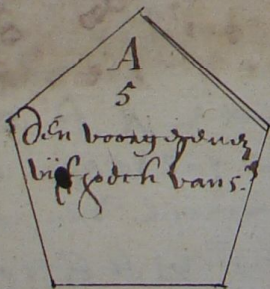 A
5
Den voorgegeven
vijfhoeck van 5.